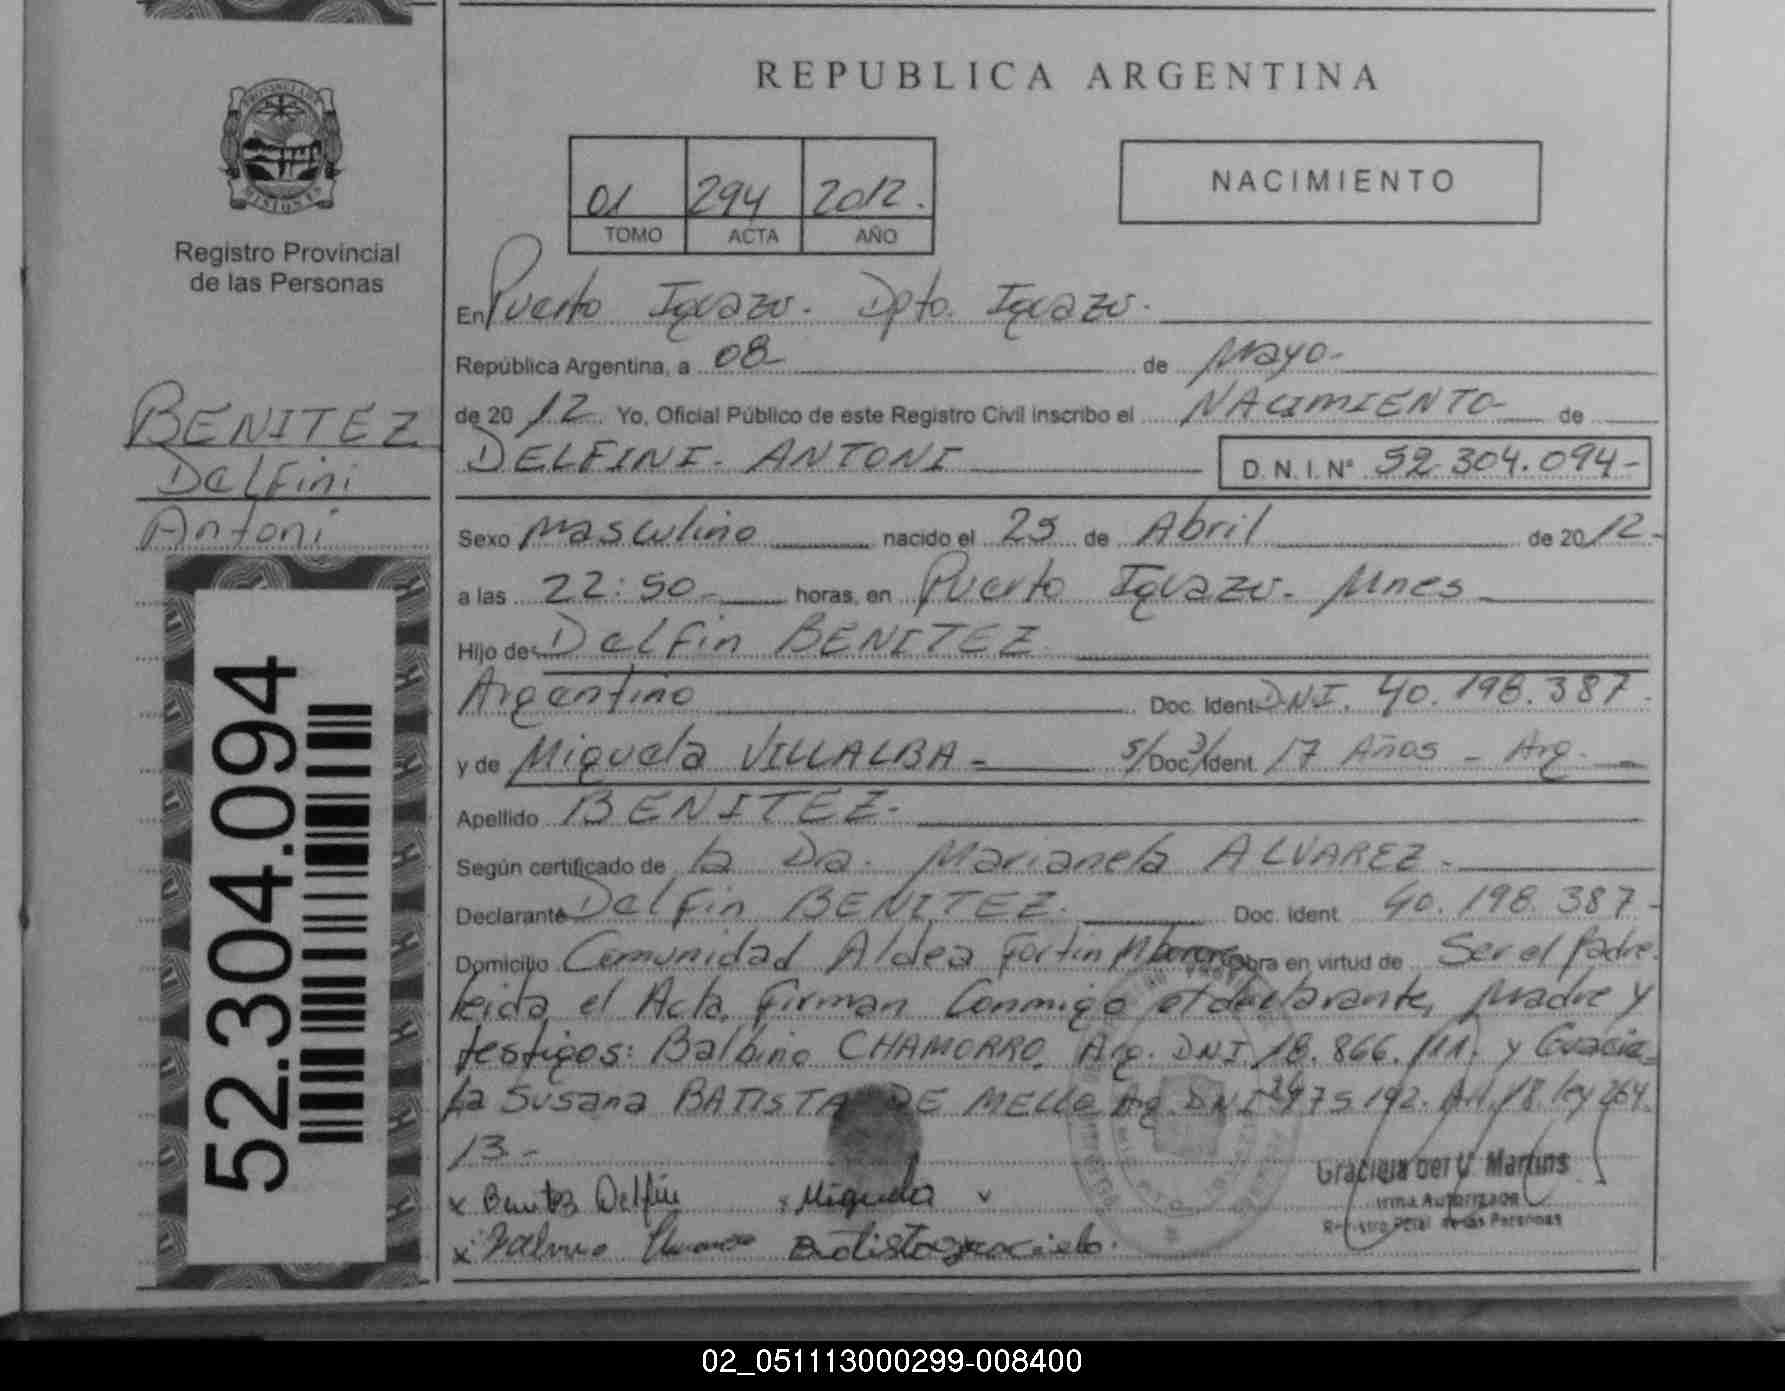 REPUBLICA ARGENTINA
PROVINCIA DE MISIONES
Registro Provincial
de las Personas
01 294 2012.
TOMO ACTA AÑO
NACIMIENTO
En Puerto Iguazu. Dpto. Iguazu.
República Argentina, a 08 de Mayo-
de 20 12 Yo, Oficial Público de este Registro Civil inscribo el NACIMIENTO de
DELFINI. ANTONI
D. N. I. Nº 52.304.094-
BENITEZ
Delfini
Antoni
52.304.094
Sexo Masculino nacido el 25 de Abril de 20 12-
a las 22:50- horas, en Puerto Iguazu. Mnes
Hijo de Delfin BENITEZ.
Argentino Doc. Ident DNI. 40.198.387.
y de Miguela VILLALBA- s/Doc/Ident. 17 Años - Arg.
Apellido BENITEZ.
Según certificado de la Dra. Marianela ALVAREZ.
Declarante Delfin BENITEZ. Doc. Ident. 40.198.387-
Domicilio Comunidad Aldea Fortin Mborore Obra en virtud de Ser el Padre.
leida el Acta, firman Conmigo el declarante, Madre y
testigos: Balbino CHAMORRO, Arg. DNI 18.866.111. y Gracie-
la Susana BATISTA DE MELLO Arg. DNI 975.192. Art. 18. ley 264
13-
x Benitez Delfin x Miguela
x Batista graciela.
Graciela del V. Martins
Firma Autorizada
Registro Pcial. de las Personas
02_051113000299-008400